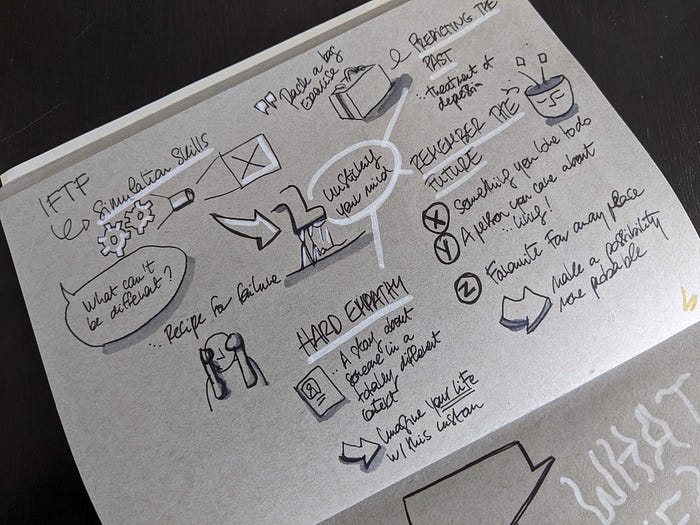 IFTF
Simulation Skills
What can't
be different?
Recipe for failure
Pack a bag
Exercise
Unsticking
you mind
PREDICTING THE
PAST
treatment of
depression
REMEMBER THE
FUTURE
X Something you love to do
Y A person you care about
liking!
Z Favourite far away place
Make a possibility
more probable
HARD EMPATHY
A story about
someone in a
totaley different
context
Imagine your life
w/ this custom
WHAT